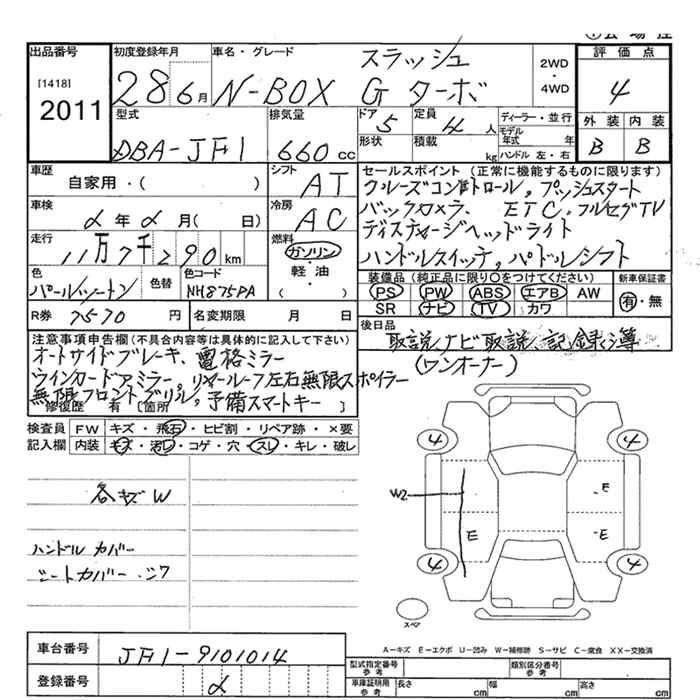 出品番号 初度登録年月 車名・グレード スラッシュ 2WD・4WD 評価点
[1418]
2011 28 6月 N-BOX G ターボ 4
型式 排気量 ドア 5 定員 4人 ディーラー・並行 外装 内装
形状 積載 kg モデル年式 年
DBA-JF1 660cc ハンドル 左・右 B B
車歴 シフト セールスポイント (正常に機能するものに限ります)
自家用・( ) AT クルーズコントロール, プッシュスタート
車検 冷房 バックカメラ、ETC、フルセグTV
2年2月( 日) AC ディスチャージヘッドライト
走行 燃料 ハンドルスイッチ, パドルシフト
11万7千290km ガソリン・軽・油・( )
装備品 (純正品に限り〇をつけてください) 新車保証書
色 色替 色コード PS PW ABS エアB AW 有・無
パールツートン NH875PA SR ナビ TV カワ
R券 7570円 名変期限 月 日 後日品
取説 ナビ取説 記録簿
(ワンオーナー)
注意事項申告欄(不具合内容等は具体的に記入して下さい)
オートサイドブレーキ、電格ミラー
ウインカードアミラー, リヤルーフ左右無限スポイラー
無限フロントグリル, 予備スマートキー
修復歴 有 [箇所 ]
検査員 FW キズ・飛石・ヒビ割・リペア跡・×要
記入欄 内装 キズ・汚レ・コゲ・穴・スレ・キレ・破レ
4 4
各キズW W2 E
E E
ハンドルカバー
シートカバー・シワ 4 4
スペア
A-キズ E-エクボ U-凹み W-補修跡 S-サビ C-腐食 XX-交換済
車台番号 JF1-9101014
型式指定番号 参考 類別区分番号 参考
登録番号 2 車庫証明用 参考 長さ cm 幅 cm 高さ cm